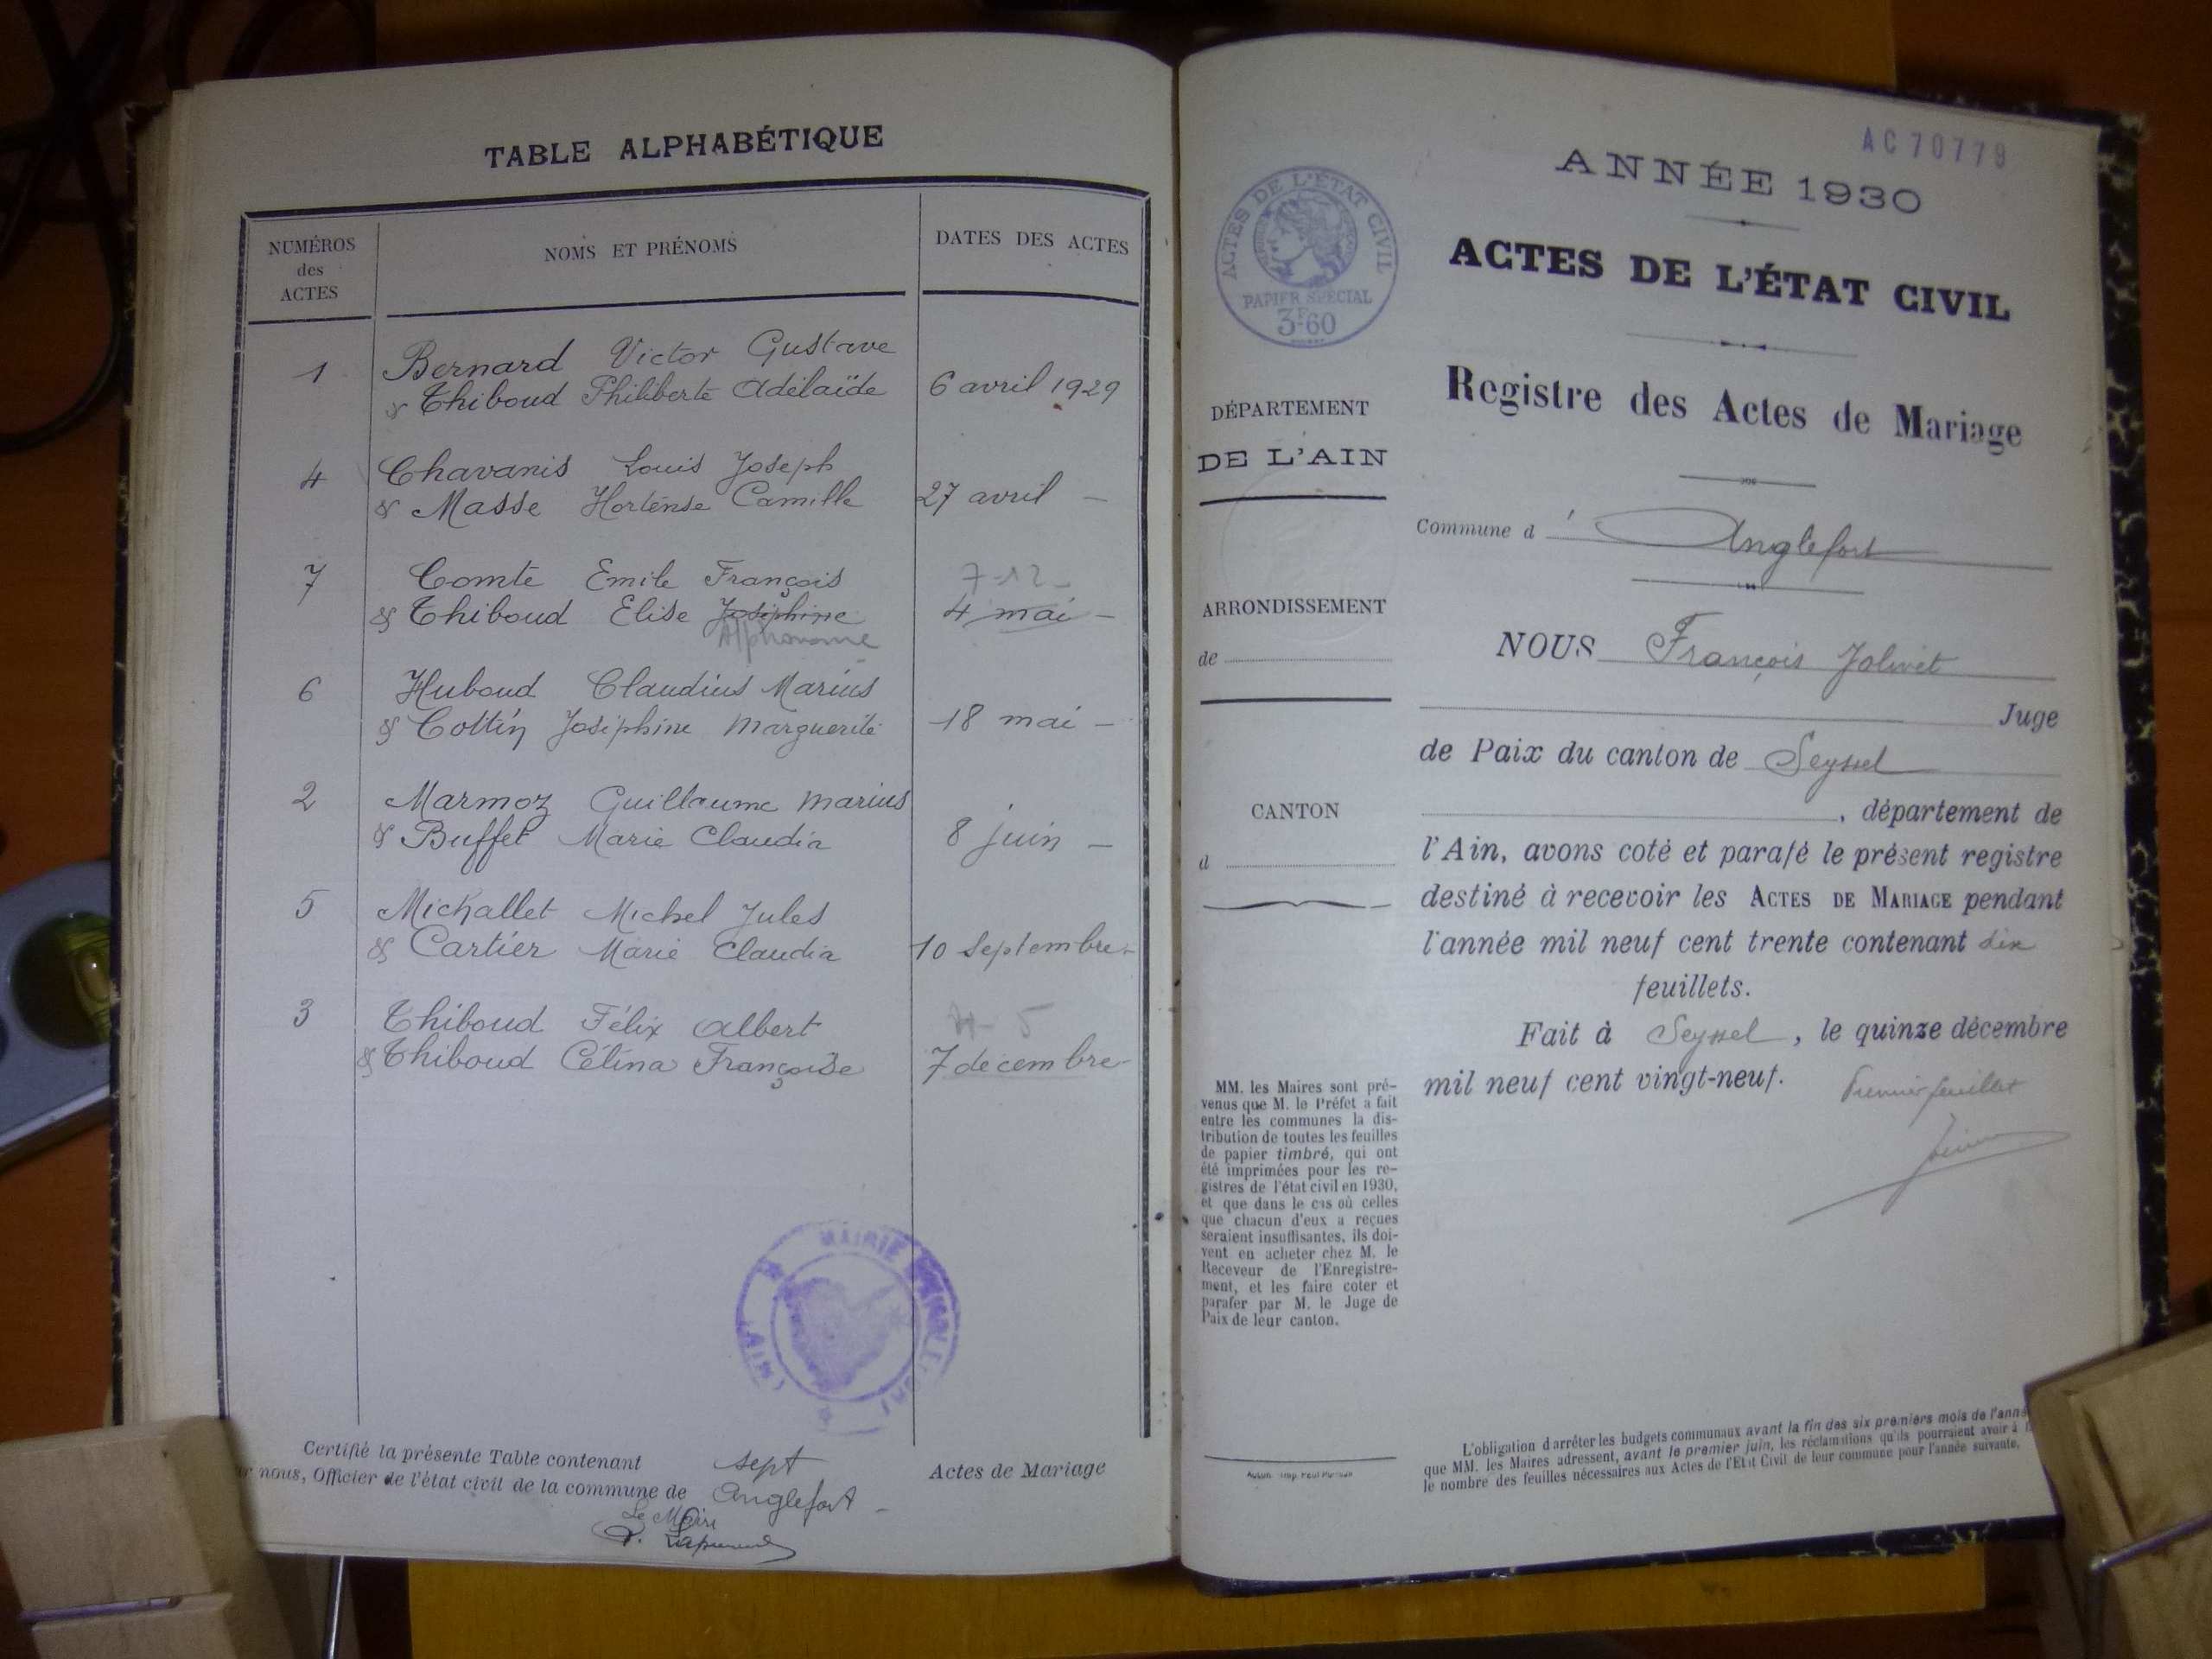 TABLE ALPHABÉTIQUE
NUMÉROS
des
ACTES
NOMS ET PRÉNOMS
DATES DES ACTES
1 Bernard Victor Gustave
& Thiboud Philiberte Adélaïde 6 avril 1929
4 Chavanis Louis Joseph
& Masse Hortense Camille 27 avril -
7 Comte Emile François 7-12-
& Thiboud Elise Josephine 4 mai -
6 Huboud Claudius Marius
& Cottin Joséphine Marguerite 18 mai -
2 Marmoz Guillaume Marius
& Buffet Marie Claudia 8 juin -
5 Michallet Michel Jules
& Cartier Marie Claudia 10 Septembre -
3 Thiboud Félix Albert
& Thiboud Célina Françoise 7 décembre -
MAIRIE
(AIN)
Certifié la présente Table contenant sept Actes de Mariage
nous, Officier de l'état civil de la commune de Anglefort -
Le Maire
AC 70779
ANNÉE 1930
ACTES DE L'ÉTAT CIVIL
PAPIER SPÉCIAL
3F60
ACTES DE L'ÉTAT CIVIL
Registre des Actes de Mariage
DÉPARTEMENT
DE L'AIN
Commune d' Anglefort
ARRONDISSEMENT
de
CANTON
d
NOUS François Jolivet
Juge
de Paix du canton de Seyssel
, département de
l'Ain, avons coté et parafé le présent registre
destiné à recevoir les ACTES DE MARIAGE pendant
l'année mil neuf cent trente contenant dix
feuillets.
Fait à Seyssel, le quinze décembre
mil neuf cent vingt-neuf.
Premier feuillet
MM. les Maires sont pré-
venus que M. le Préfet a fait
entre les communes la dis-
tribution de toutes les feuilles
de papier timbré, qui ont
été imprimées pour les re-
gistres de l'état civil en 1930,
et que dans le cas où celles
que chacun d'eux a reçues
seraient insuffisantes, ils doi-
vent en acheter chez M. le
Receveur de l'Enregistre-
ment, et les faire coter et
parafer par M. le Juge de
Paix de leur canton.
L'obligation d'arrêter les budgets communaux avant la fin des six premiers mois de l'anné
que MM. les Maires adressent, avant le premier juin, les réclamations qu'ils pourraient avoir à
le nombre des feuilles nécessaires aux Actes de l'Etat Civil de leur commune pour l'année suivante.